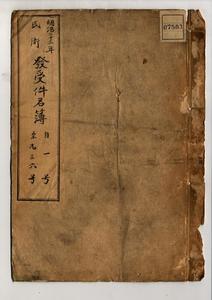 明治三十三年
民刑
發受件名簿
自一号
至九三六号
07503